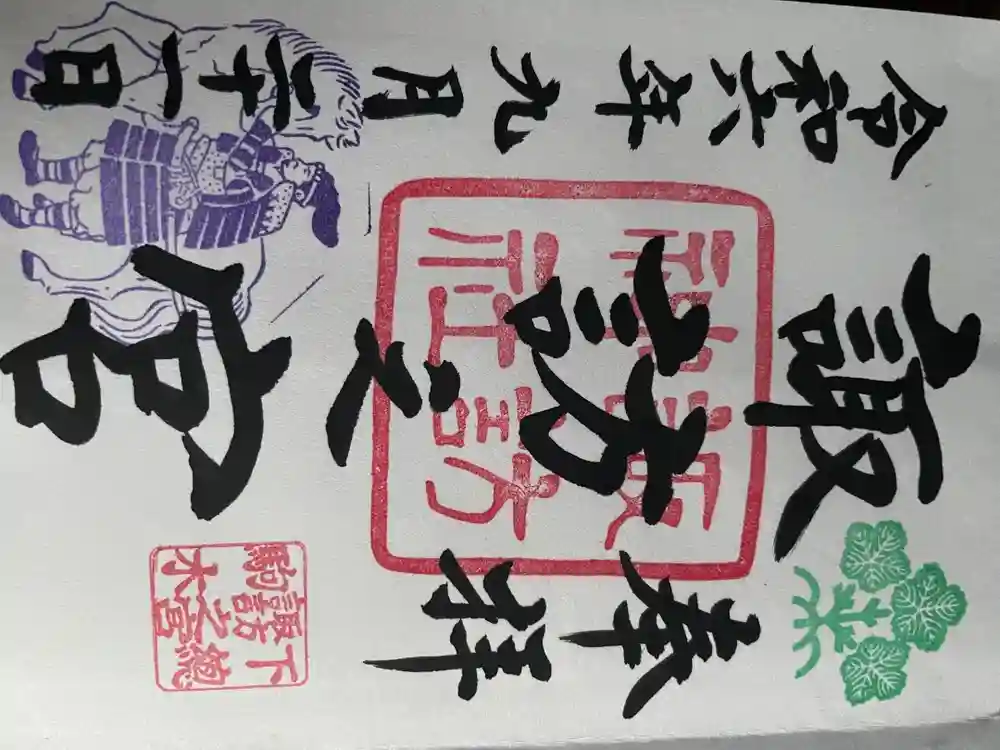 奉拝
諏訪之宮
令和六年九月二十一日
諏訪
神社
下總
諏訪之宮
駒木